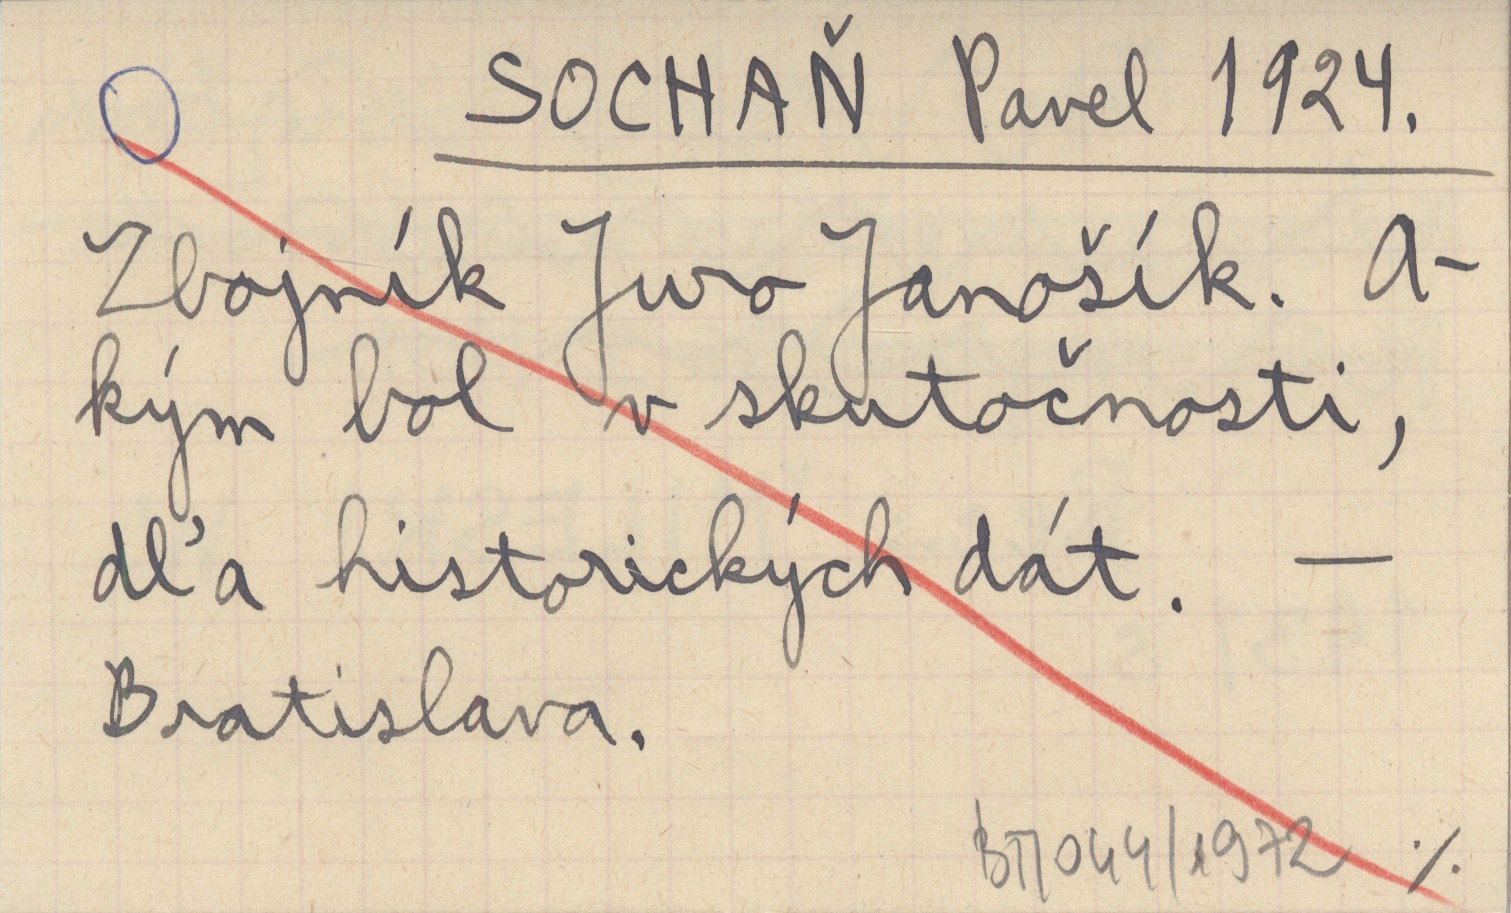 SOCHAŇ Pavel 1924.
Zbojník Juro Janošík. A-
kým bol v skutočnosti,
dľa historických dát. —
Bratislava.
044/1972 ./.